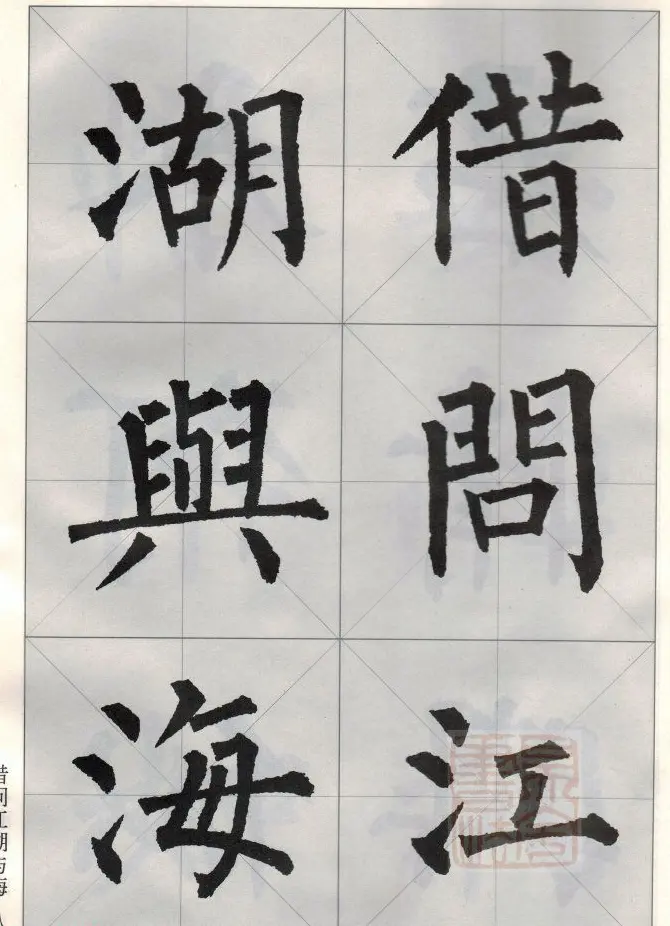 借問江
湖與海
借问江湖与海